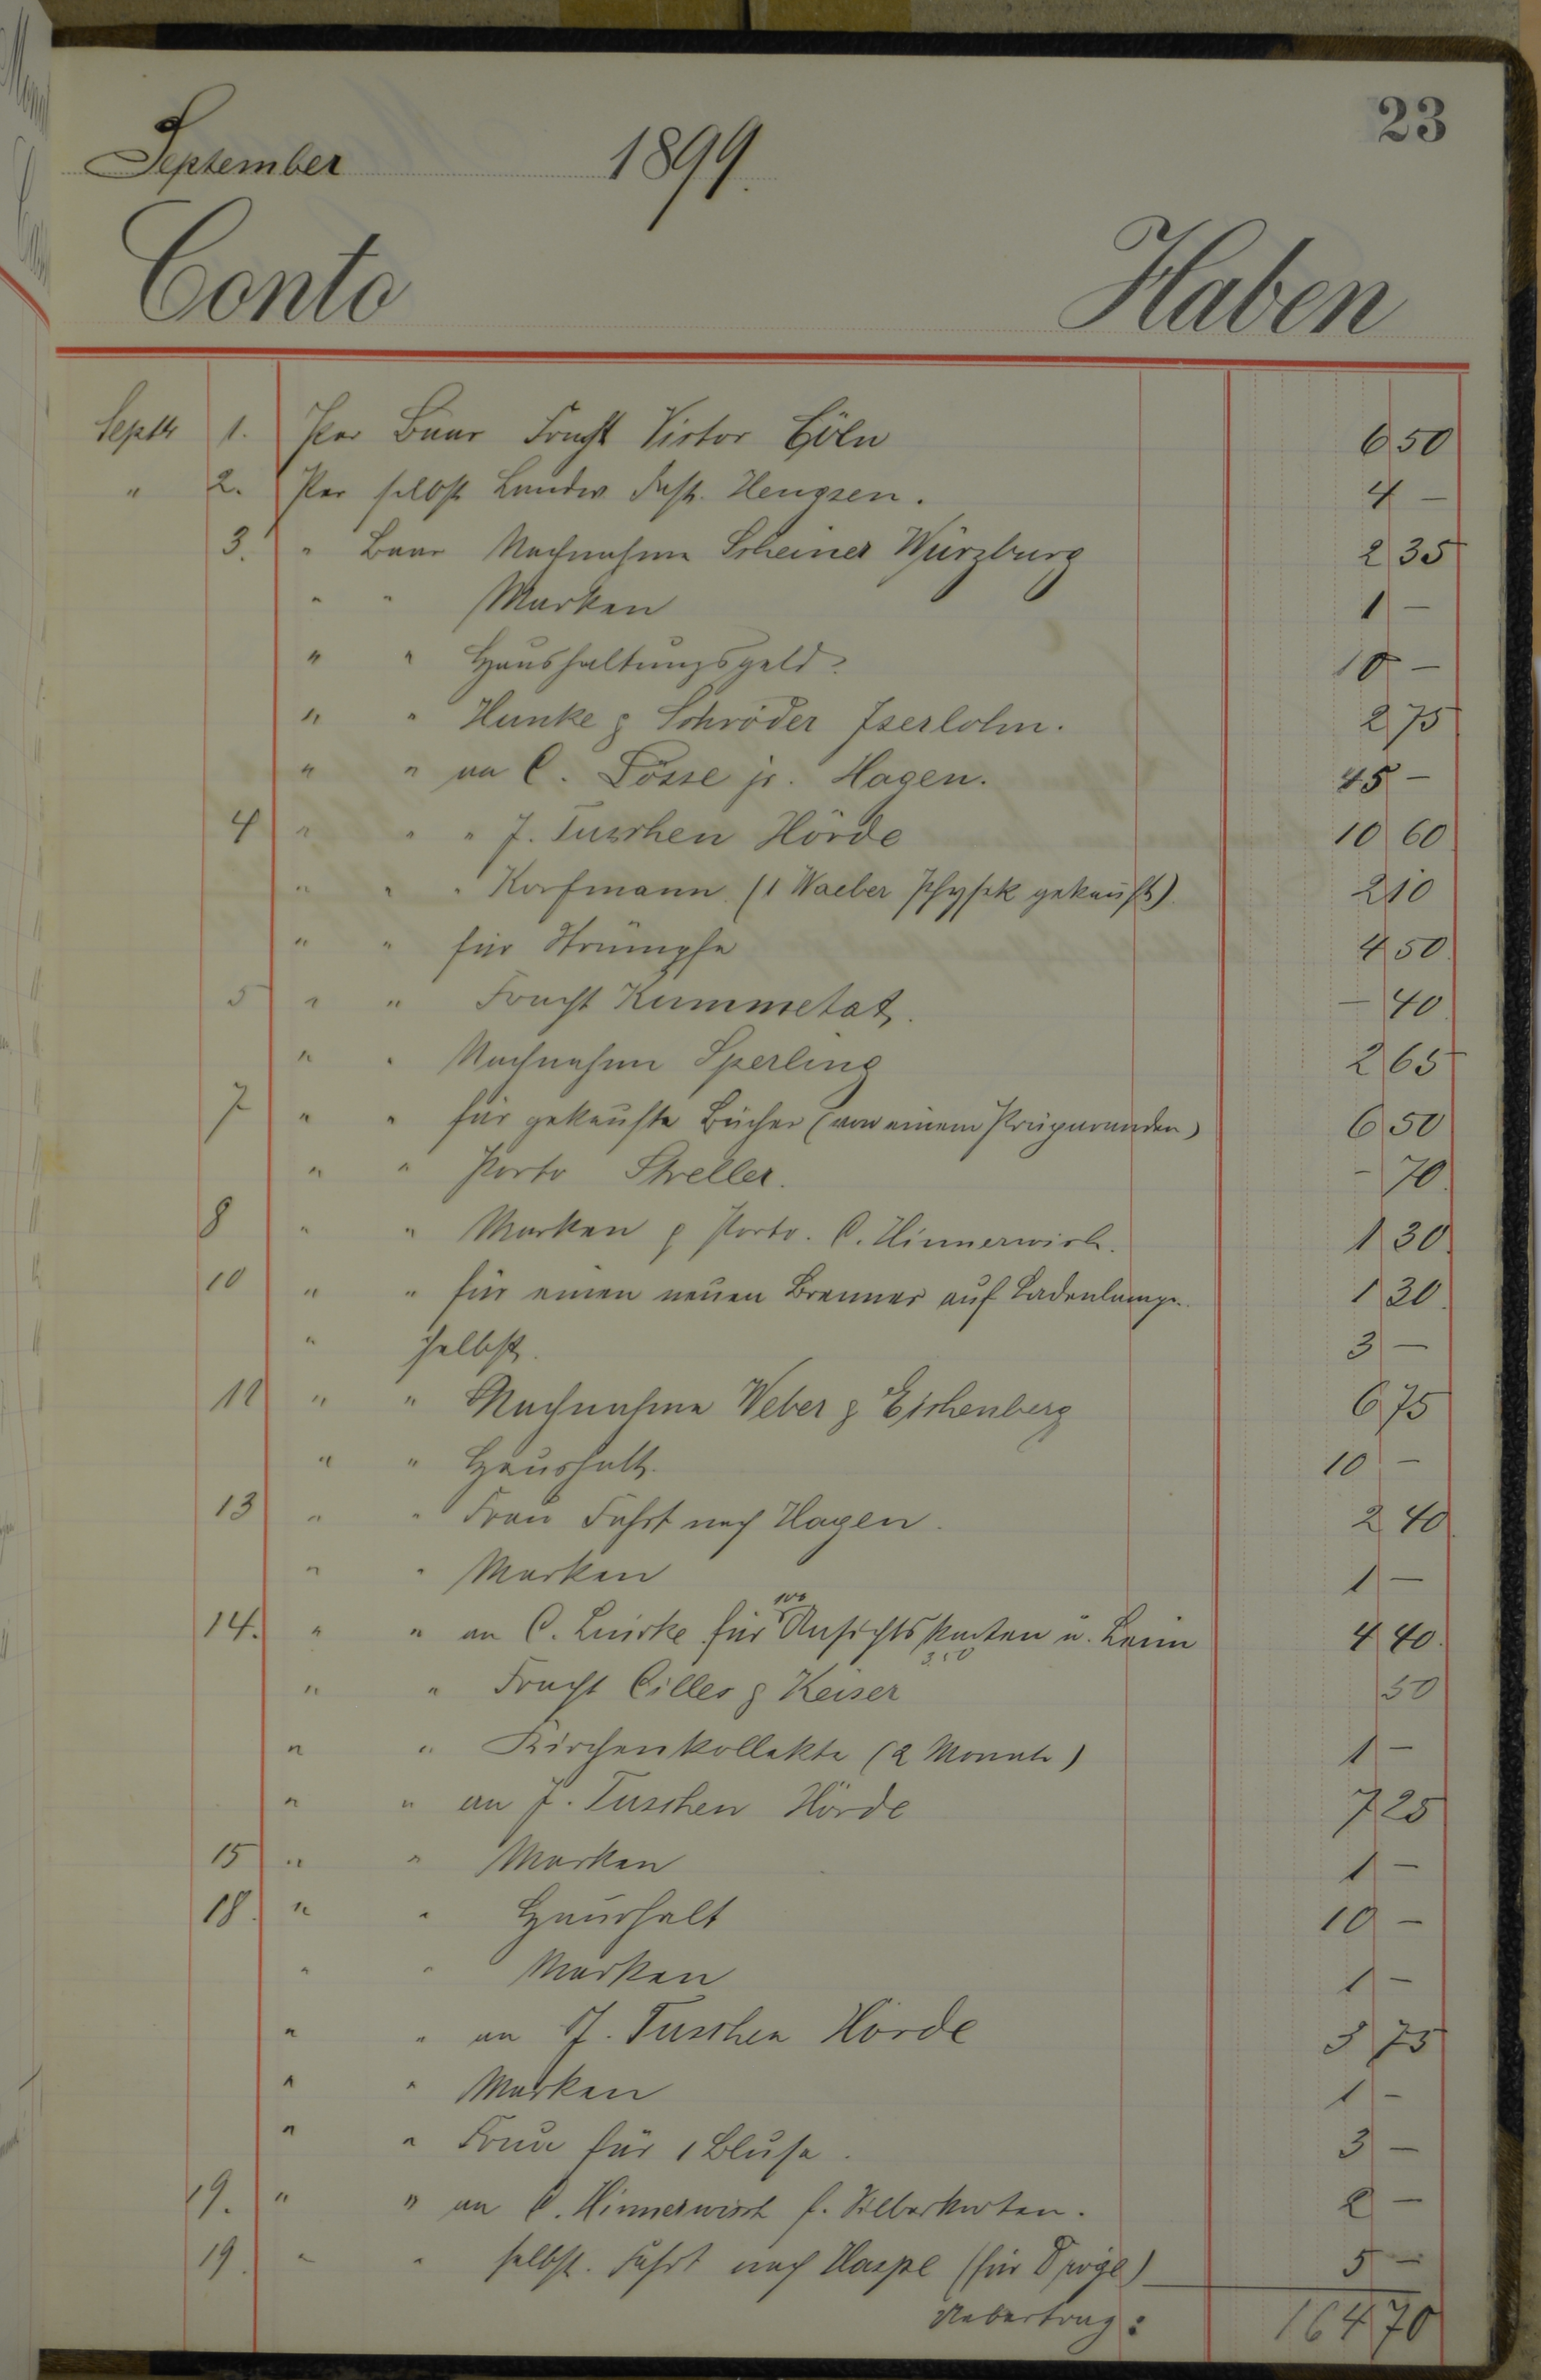 23
September 1899.
Conto Haben
Septb 1. Per Baar Fracht Victor Cöln 6 50
" 2. Per selbst Landw. Insp. Hengsen. 4 -
3. " Baar Nachnahme Scheiner Würzburg 2 35
" " Marken 1 -
" " Haushaltungsgeld. 10 -
" " Hunke & Schröder Iserlohn. 2 75
" " an C. Lösse jr. Hagen. 45 -
4 " " " J. Tuschen Hörde 10 60
" " " Korfmann (1 Waeber Physik gekauft). 2 10
" " für Strümpfe 4 50
5 " " Fracht Kummetat. - 40
" " Nachnahme Sperling 2 65
7 " " für gekaufte Bücher (von einem Präparanden) 6 50
" " Porto Streller. - 70
8 " " Marken & Porto. C. Hinnerwisch. 1 30
10 " " für einen neuen Brenner auf Ladenlampe. 1 30
" selbst. 3 -
11 " " Nachnahme Weber & Eichenberg 6 75
" " Haushalt. 10 -
13 " " Frau Fahrt nach Hagen. 2 40
" " Marken 1 -
14. " " an C. für 100 Ansichtskarten u. Leim 4 40
3.50
" " Fracht Cilles & Keiser 50
" " Kirchenkollekte (2 Monate) 1 -
" " an J. Tuschen Hörde 7 25
15 " " Marken 1 -
18. " " Haushalt 10 -
" " Marken 1 -
" " an J. Tuschen Hörde 5 75
" " Marken 1 -
" " Frau für 1 Bluse. 3 -
19. " " an C. Hinnerwisch f. Silberkarten. 2 -
19. " " selbst. Fahrt nach Haspe (für) 5 -
Uebertrag: 164 70